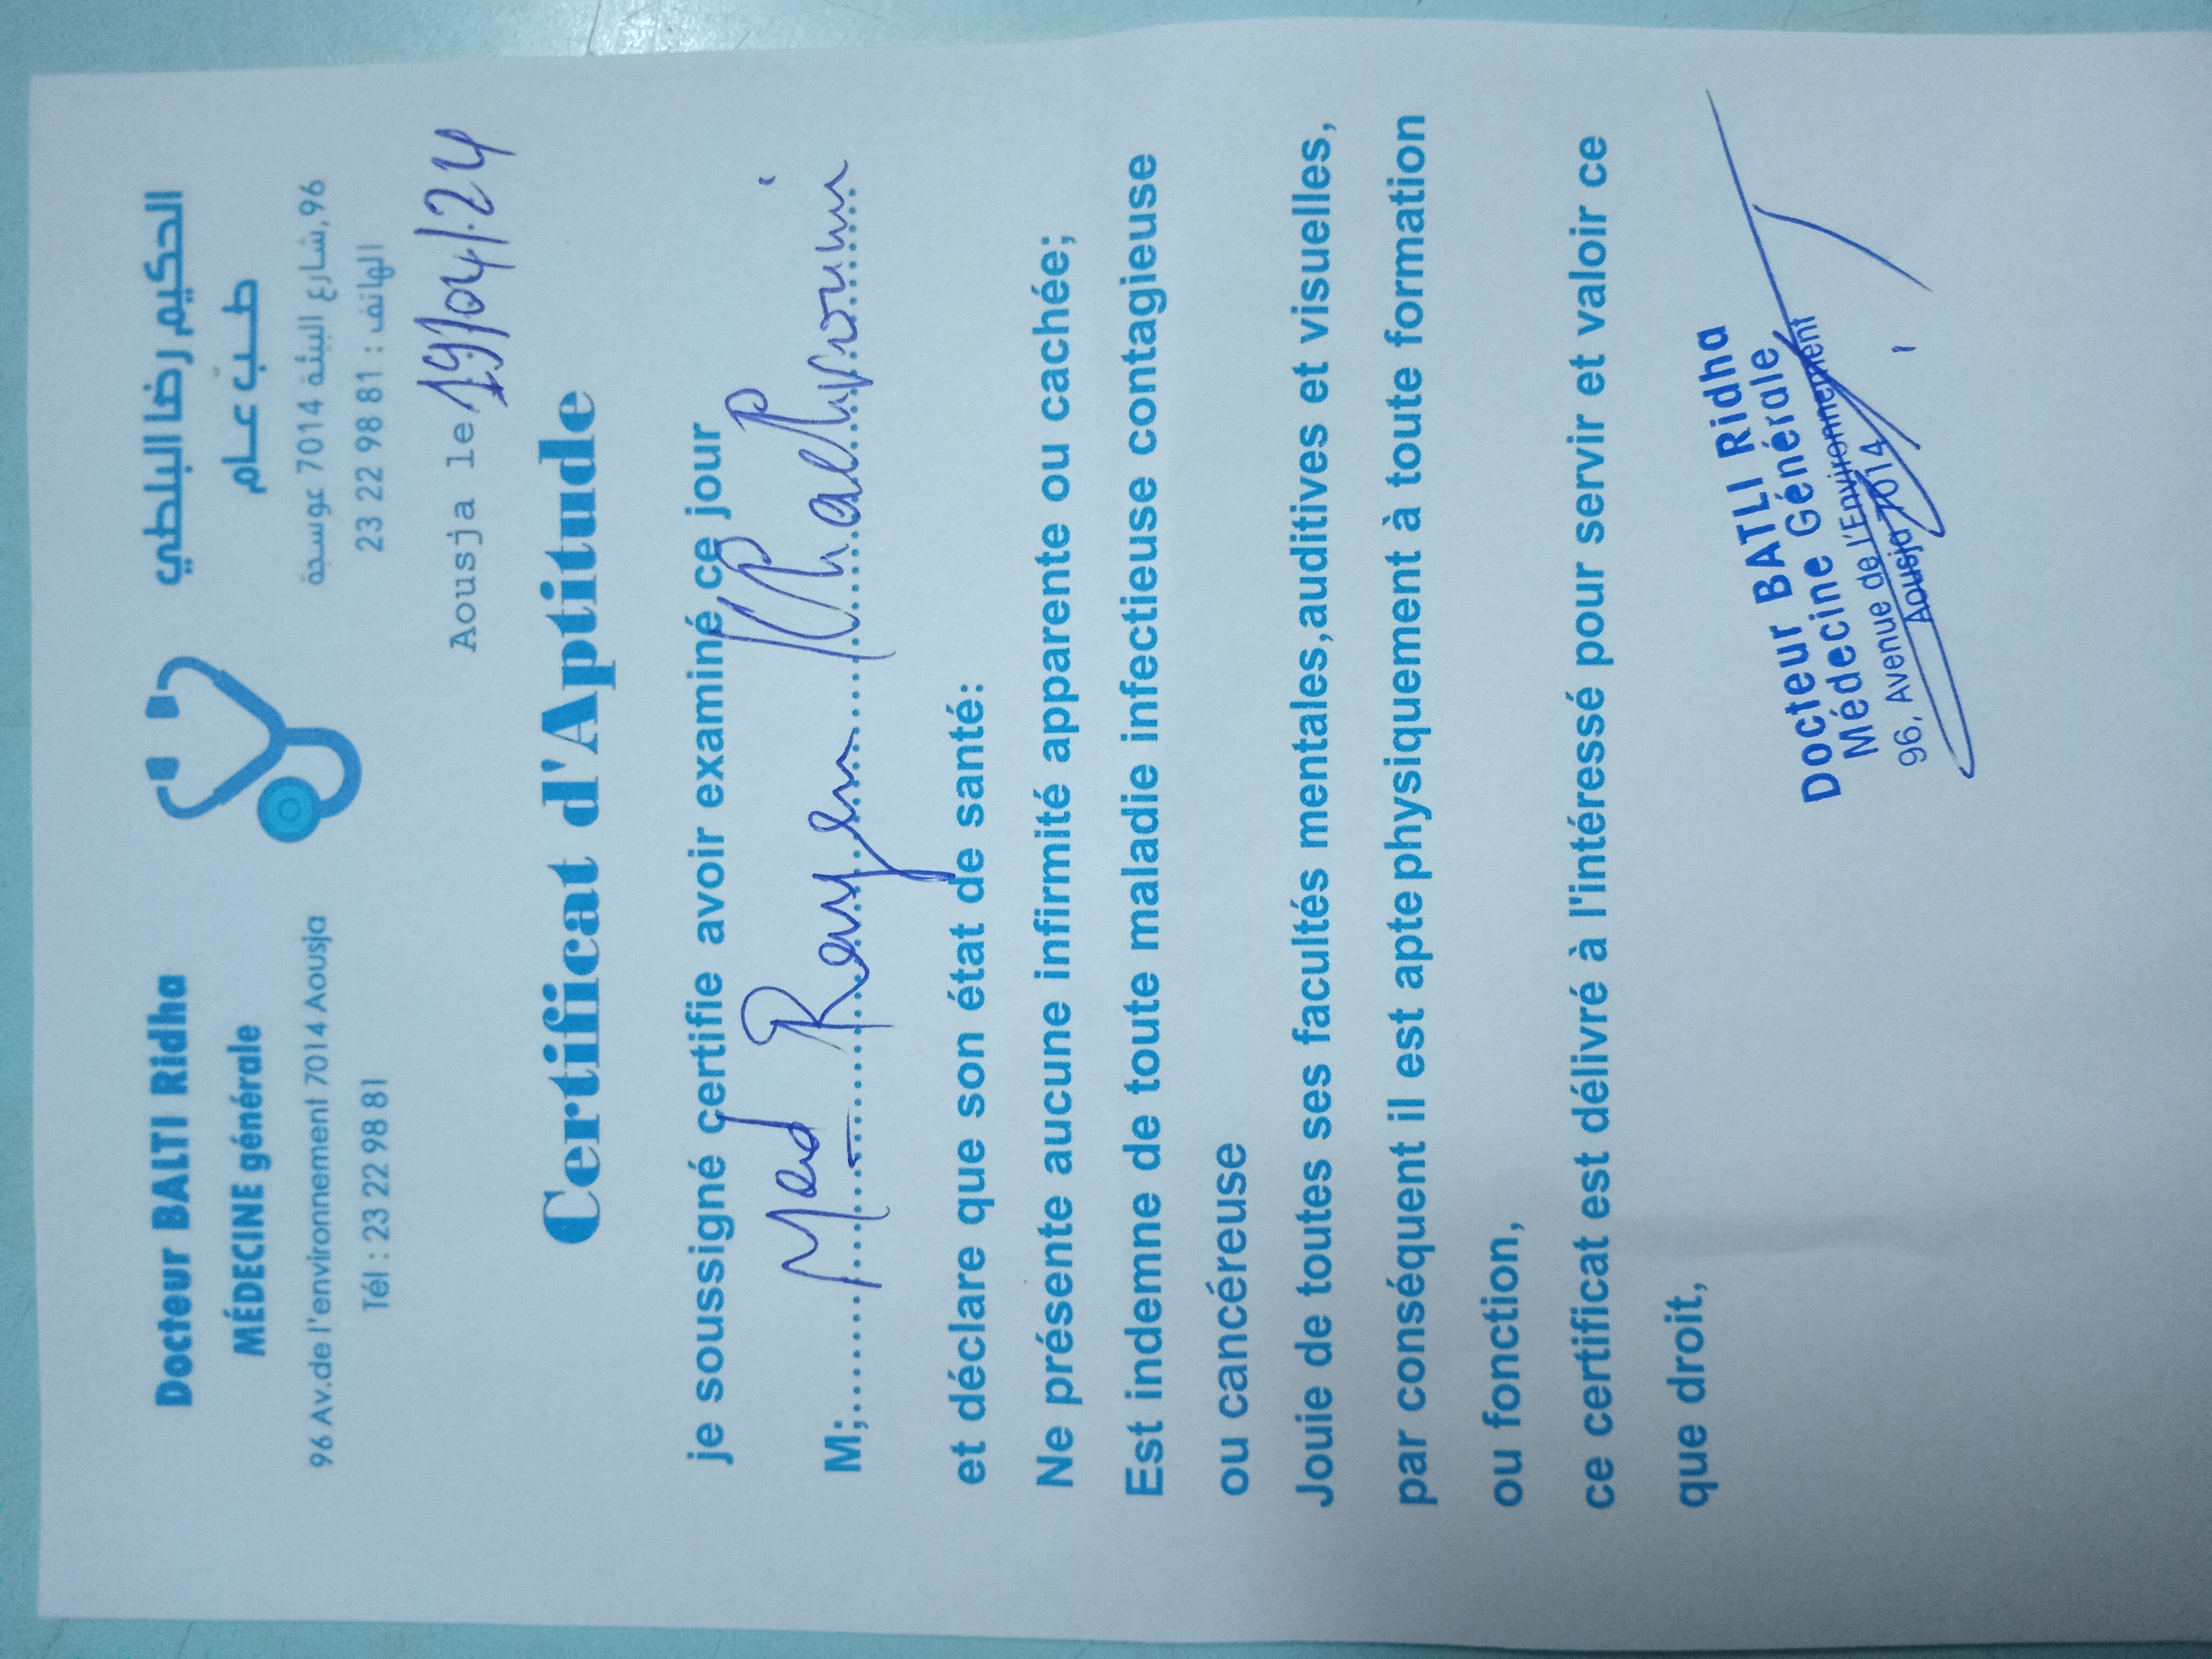 Docteur BALTI Ridha
MÉDECINE générale
96 Av.de l'environnement 7014 Aousja
Tél : 23 22 98 81
الحكيم رضا البلطي
طب عام
96,شارع البيئة 7014 عوسجة
الهاتف : 81 98 22 23
Aousja le 19/04/24
Certificat d'Aptitude
je soussigné certifie avoir examiné ce jour
M;....... Med Rayen
et déclare que son état de santé:
Ne présente aucune infirmité apparente ou cachée;
Est indemne de toute maladie infectieuse contagieuse
ou cancéreuse
Jouie de toutes ses facultés mentales,auditives et visuelles,
par conséquent il est apte physiquement à toute formation
ou fonction,
ce certificat est délivré à l'intéressé pour servir et valoir ce
que droit,
Docteur BATLI Ridha
Médecine Générale
96, Avenue de l'Environnement
Aousja 7014